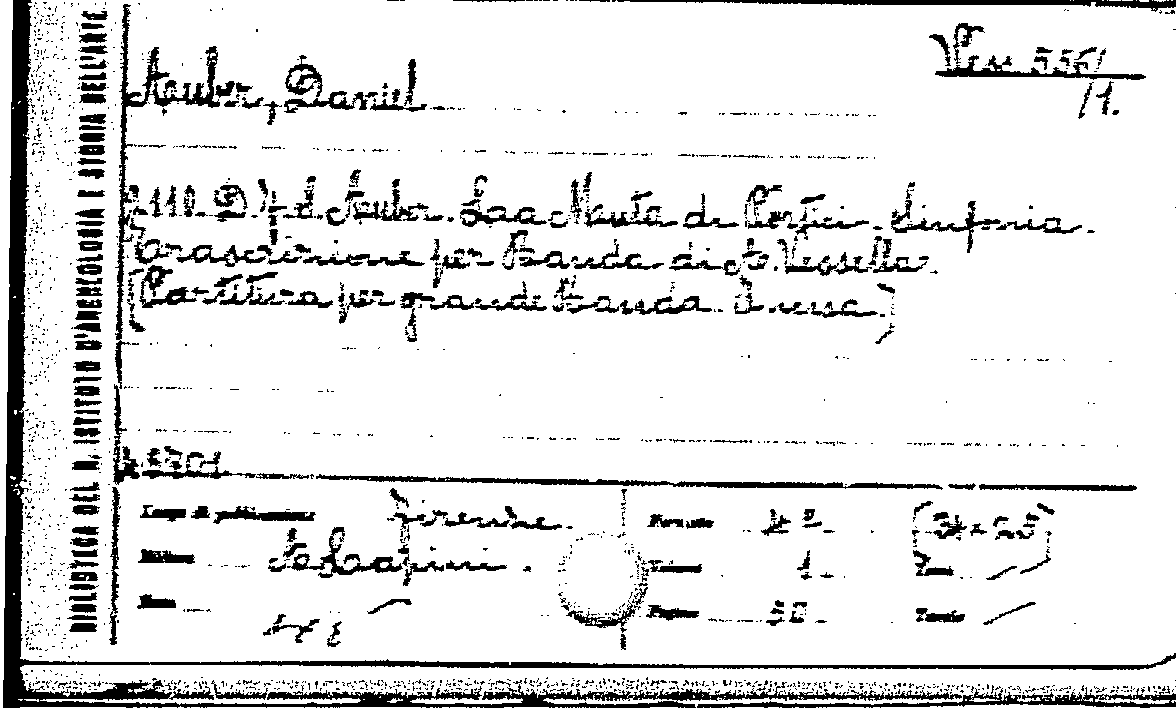 BIBLIOTECA DEL R. ISTITUTO D'ARCHEOLOGIA E STORIA DELL'ARTE
Auber, Daniel
Vess. 556/
/1.
110. D. F. d. Auber. Laa Muta di Portici. Sinfonia.
Trascrizione per Banda di A. Vessella.
(Partitura per grande Banda.
Luogo di pubblicazione Firenze.
Editore A. Lapini.
Formato 4º
Volumi 1
Pagine 30
Tavole